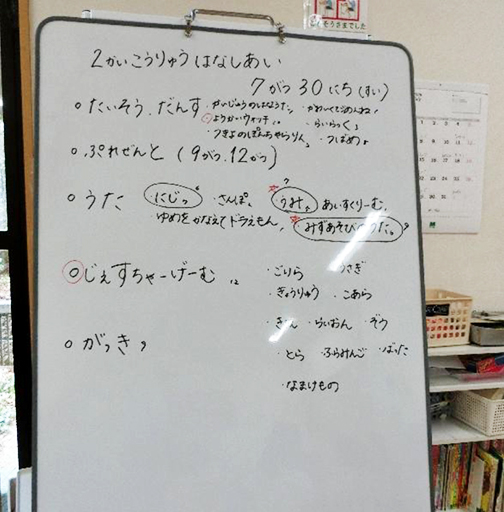 ごちそうさまでした
2かいこうりゅうはなしあい
7がつ30にち(すい)
○たいそう、だんす
・かいじゅうのはなうた
・かわいくてごめん
○ようかいウォッチ
・らいらっく
・つきよのぽんちゃらりん
・つばめ
○ぷれぜんと(9がつ、12がつ)
○うた
にじ
・さんぽ
うみ
あいすくりーむ
ゆめをかなえてドラえもん
みずあそびのうた
○じぇすちゃーげーむ 12
・ごりら
・うさぎ
・きょうりゅう
・こあら
・きりん
・らいおん
・ぞう
○がっき 9
・とら
・ふらみんご
・ばった
・なまけもの